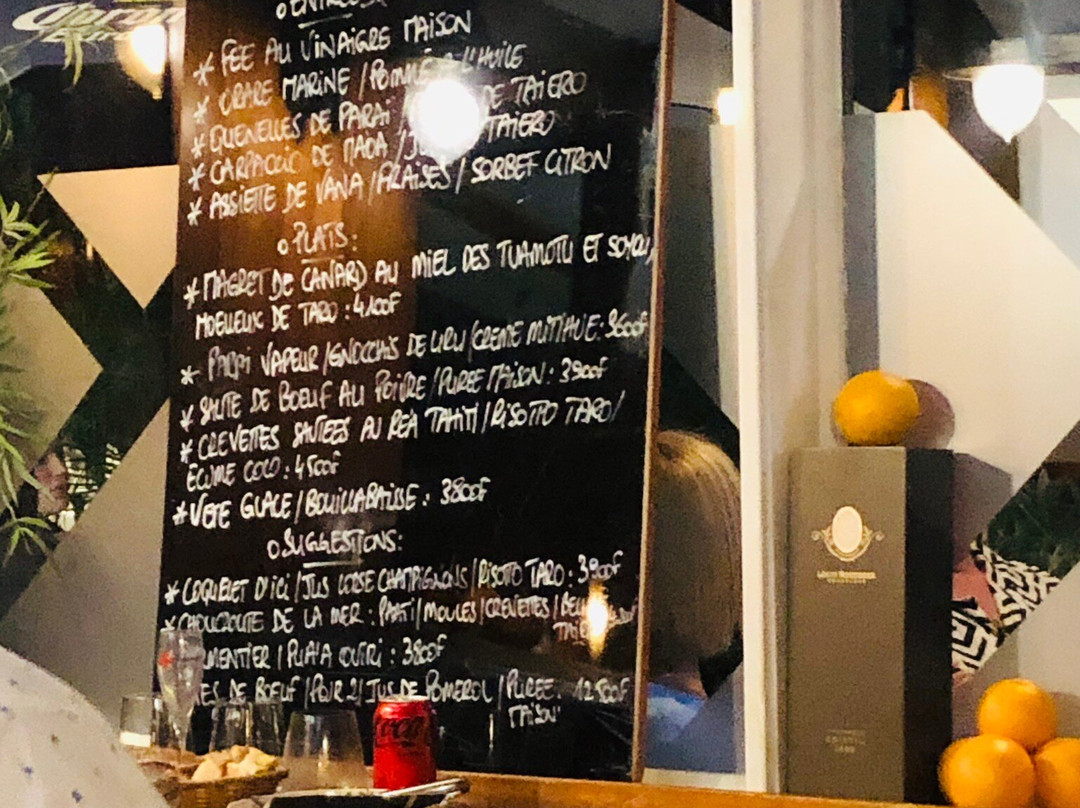 Corona
Extra
o ENTREES
* FEE AU VINAIGRE MAISON
* URARE MARINE / POMME A L'HUILE
* QUENELLES DE PARAI / DE TAIERO
* CARPACCIO DE MAOA / TAIERO
* ASSIETTE DE VANA / FRAISES / SORBET CITRON
o PLATS:
* MAGRET DE CANARD AU MIEL DES TUAMOTU ET SOYOU,
MOELLEUX DE TARO : 4100F
* PARAI VAPEUR / GNOCCHIS DE URU / CREME MITIHUE : 3600F
* SAUTE DE BOEUF AU POIVRE / PUREE MAISON : 3900F
* CREVETTES SAUTEES AU REA TAHITI / RISOTTO TARO /
ECUME COCO : 4500F
* VETE GLACE / BOUILLABAISSE : 3800F
o SUGGESTIONS:
* COQUELET D'ICI / JUS CORSE CHAMPIGNONS / RISOTTO TARO : 3900F
* CHOUCROUTE DE LA MER : PAATI / MOULES / CREVETTES /
RMENTIER / PUA'A : 3800F
ES DE BOEUF / POUR 2 / JUS DE POMEROL / PUREE : 12500F
MAISON